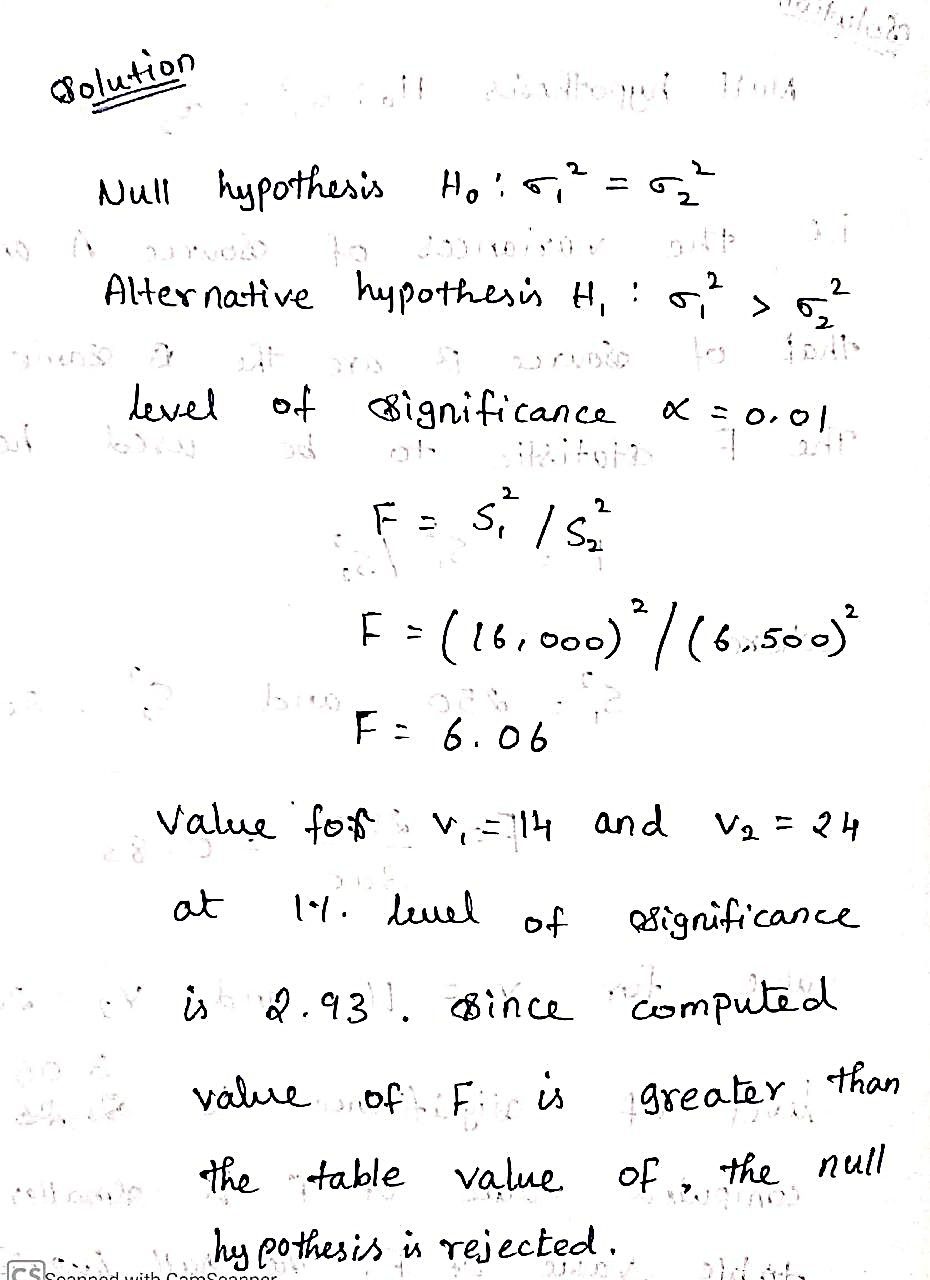 Solution
Null hypothesis H₀ : σ₁² = σ₂²
Alternative hypothesis H₁ : σ₁² > σ₂²
level of significance α = 0.01
F = S₁² / S₂²
F = (16,000)² / (6,500)²
F = 6.06
Value for v₁ = 14 and v₂ = 24
at 1%. level of significance
is 2.93. Since computed
value of F is greater than
the table value of, the null
hypothesis is rejected.
CS Scanned with CamScanner